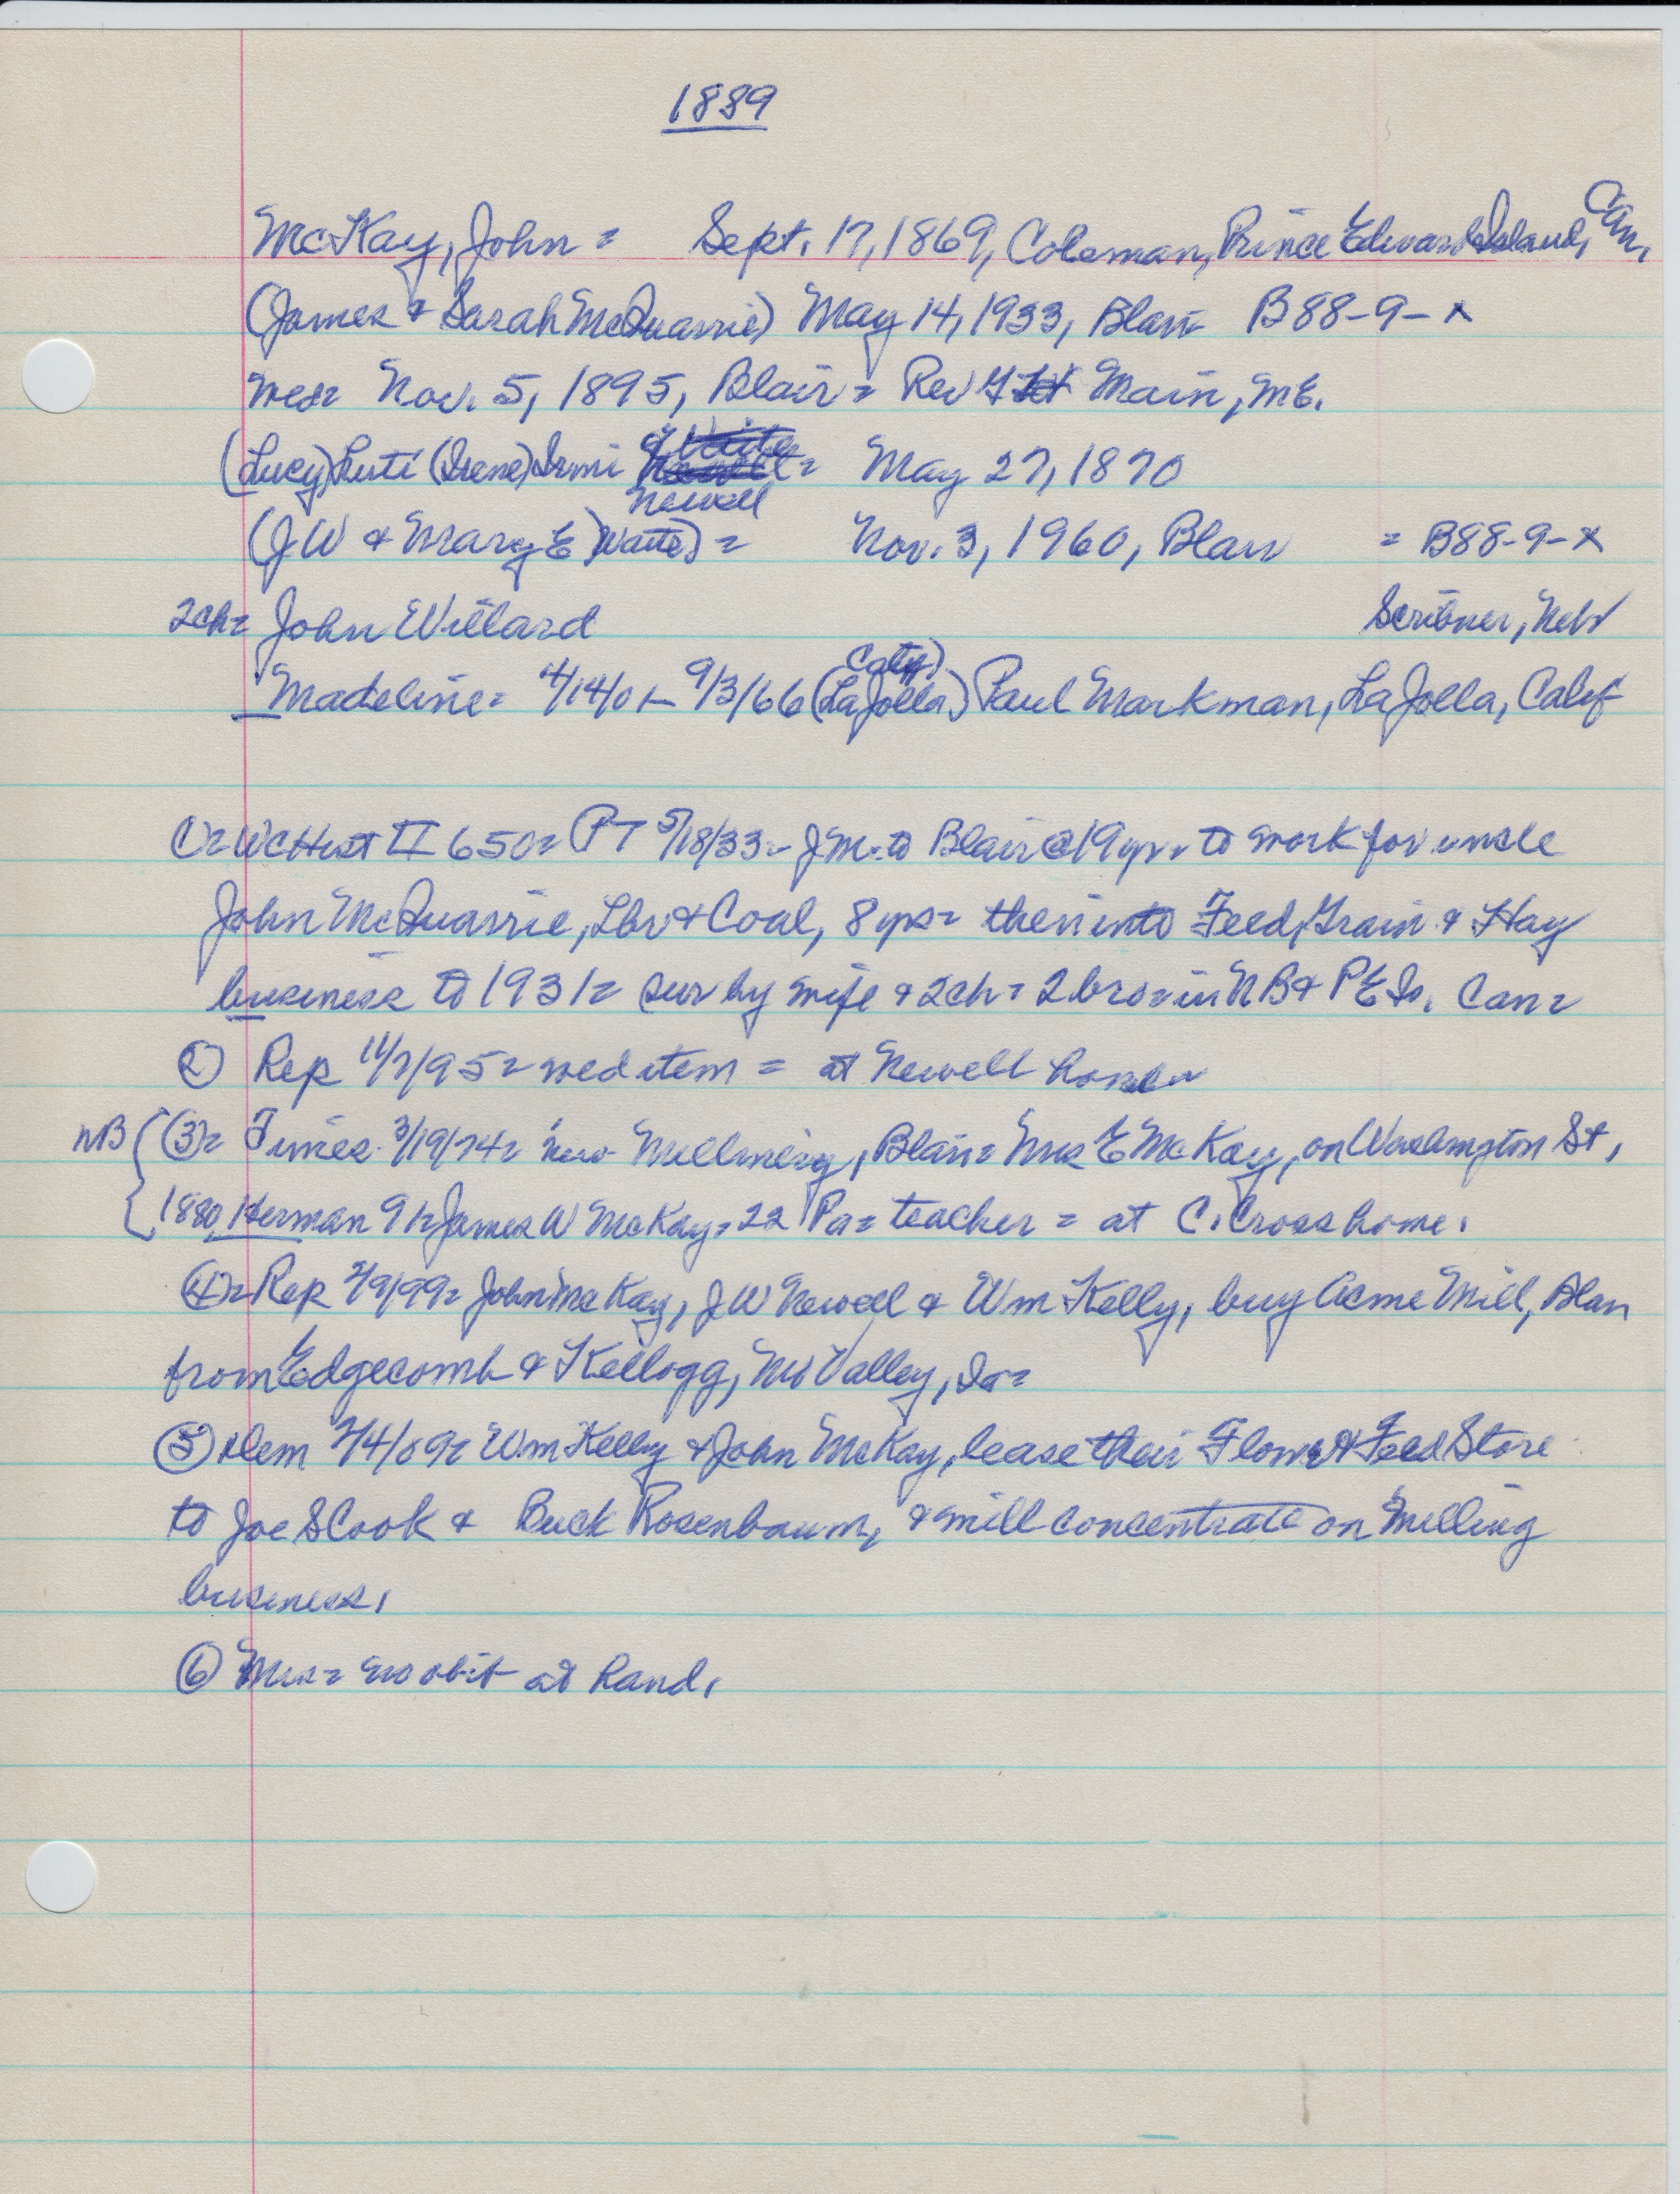 1889
McKay, John = Sept. 17, 1869, Coleman, Prince Edward Island, Can.
(James & Sarah McQuarrie) May 14, 1933, Blair B88-9-x
wed= Nov. 5, 1895, Blair = Rev Main, ME.
(Lucy) Luti (Irene) Irmi Newell = May 27, 1870
(JW & Mary E Waite) = Nov. 3, 1960, Blair = B88-9-x
2ch= John Willard Scribner, Nebr
Madeline= 4/14/01-9/3/66 (LaJolla, Calif) Paul Markman, LaJolla, Calif
WCHist II 650= PT 5/18/33= JM to Blair @ 19 yrs to work for uncle
John McQuarrie, Lbr & Coal, 8 yrs= then into Feed, Grain & Hay
business to 1931= sur by wife & 2ch= 2 bro= in NB & PE Is. Can=
② Rep 11/7/95= wed item = at Newell home=
NB (3)= Times 3/19/74= new Millinery, Blair= Mrs E McKay, on Washington St,
1880, Herman 91= James W McKay= 22 Pa= teacher = at C. Cross home.
④= Rep 2/9/99= John McKay, JW Newell & Wm Kelly, buy Acme Mill, Blair
from Edgecomb & Kellogg, Mo Valley, Ia=
⑤ Dem 2/4/09= Wm Kelly & John McKay, lease their Flour & Feed Store
to Joe S Cook & Buck Rosenbaum, & will concentrate on Milling
business.
⑥ Mrs= no obit at hand.